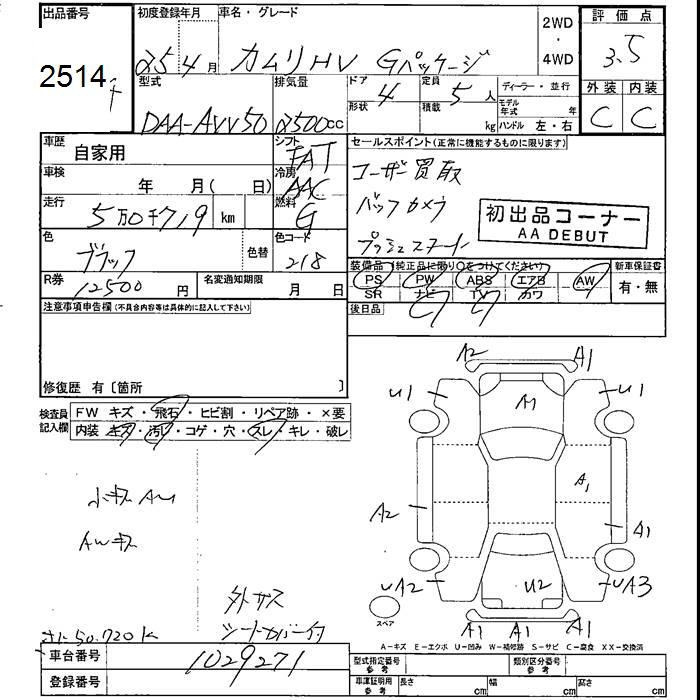 出品番号
2514
初度登録年月
25 4 月
車名・グレード
カムリHV Gパッケージ
2WD
・
4WD
評価点
3.5
型式
DAA-AVV50
排気量
2500cc
ドア
形状
4
定員
積載
5人
kg
ディーラー・並行
モデル
年式 年
ハンドル 左・右
外装 内装
C C
車歴
自家用
シフト
FAT
車検
年 月( 日)
冷房
AAC
走行
5万0千719 km
燃料
G
色
ブラック
色替
色コード
218
R券
12500 円
名変通知期限
月 日
セールスポイント(正常に機能するものに限ります)
ユーザー買取
バックカメラ
プッシュスタート
初出品コーナー
AA DEBUT
装備品(純正品に限り○をつけてください)
PS PW ABS エアB AW
SR ナビ TV カワ
新車保証書
有・無
後日品
注意事項申告欄(不具合内容等は具体的に記入して下さい)
修復歴 有〔箇所 〕
検査員
記入欄
FW キズ・飛石・ヒビ割・リペア跡・×要
内装 キズ・汚れ・コゲ・穴・スレ・キレ・破レ
小キズ AU
AWキズ
外サス
シートカバー付
50.720K
A2 A1
U1 A1 U1
A1
A2 A1
UA2 U2 UA3
A1 A1 A1
スペア
A-キズ E-エクボ U-凹み W-補修跡 S-サビ C-腐食 XX-交換済
車台番号
1029271
登録番号
型式指定番号
参考
類別区分番号
参考
車庫証明用
参考
長さ cm 幅 cm 高さ cm